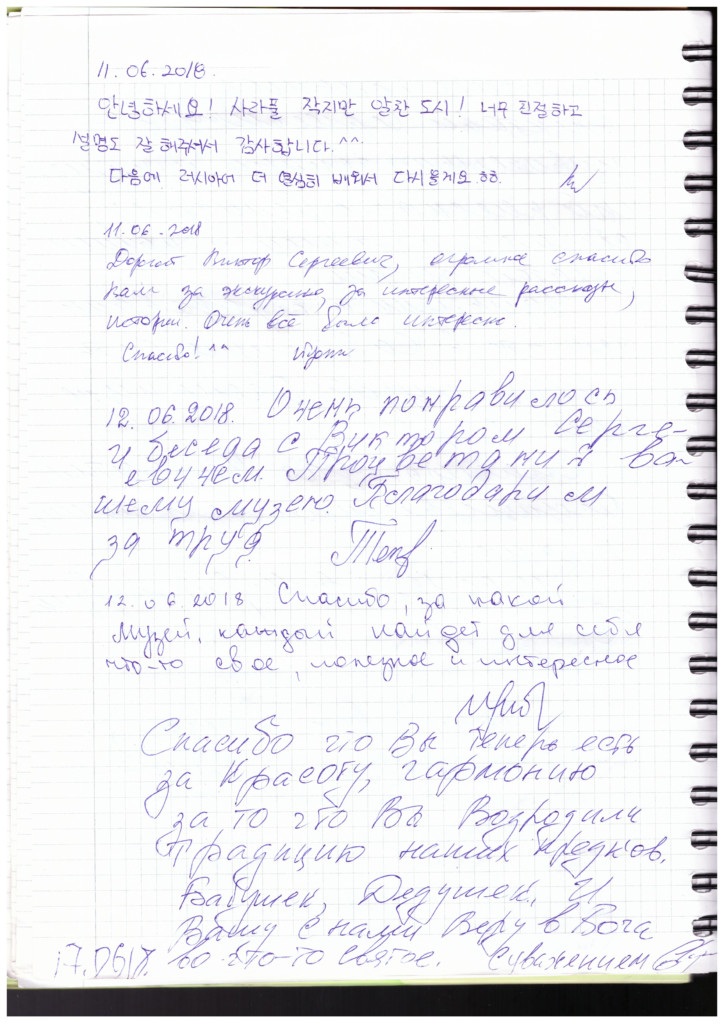 11.06.2018.
안녕하세요! 사라풀 작지만 알찬 도시! 너무 친절하고
설명도 잘 해주셔서 감사합니다.^^
다음에 러시아어 더 열심히 배워서 다시올게요 ㅎㅎ.
11.06.2018
Виктор Сергеевич, огромное спасибо
вам за экскурсию, за интересные рассказы,
истории. Очень всё было интересно.
Спасибо! ^^
12.06.2018. Очень понравилось
и беседа с Виктором Серге-
евичем. Процветания ва-
шему музею. Благодарим
за труд.
12.06.2018 Спасибо, за такой
музей, каждый найдет для себя
что-то свое, полезное и интересное
Спасибо что Вы теперь есть
за Красоту, гармонию
за то что Вы Возродили
Традицию наших предков.
Бабушек, Дедушек. И
Вашу с нами Веру в Бога
17.06.18. во что-то святое. С уважением